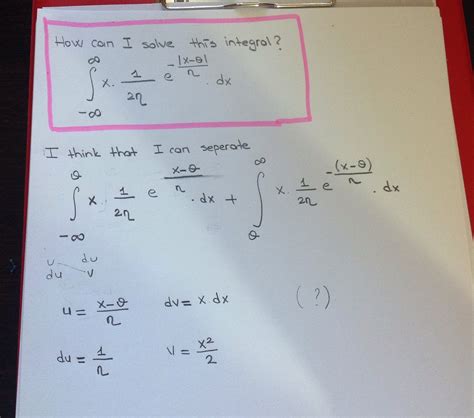 How can I solve this integral?
∫_{-∞}^{∞} x · 1/2η e^{-|x-θ|/η} · dx
I think that I can seperate
∫_{-∞}^{θ} x · 1/2η e^{x-θ/η} · dx + ∫_{θ}^{∞} x · 1/2η e^{-(x-θ)/η} · dx
u dv
du v
u = x-θ/η dv = x · dx (?)
du = 1/η v = x²/2